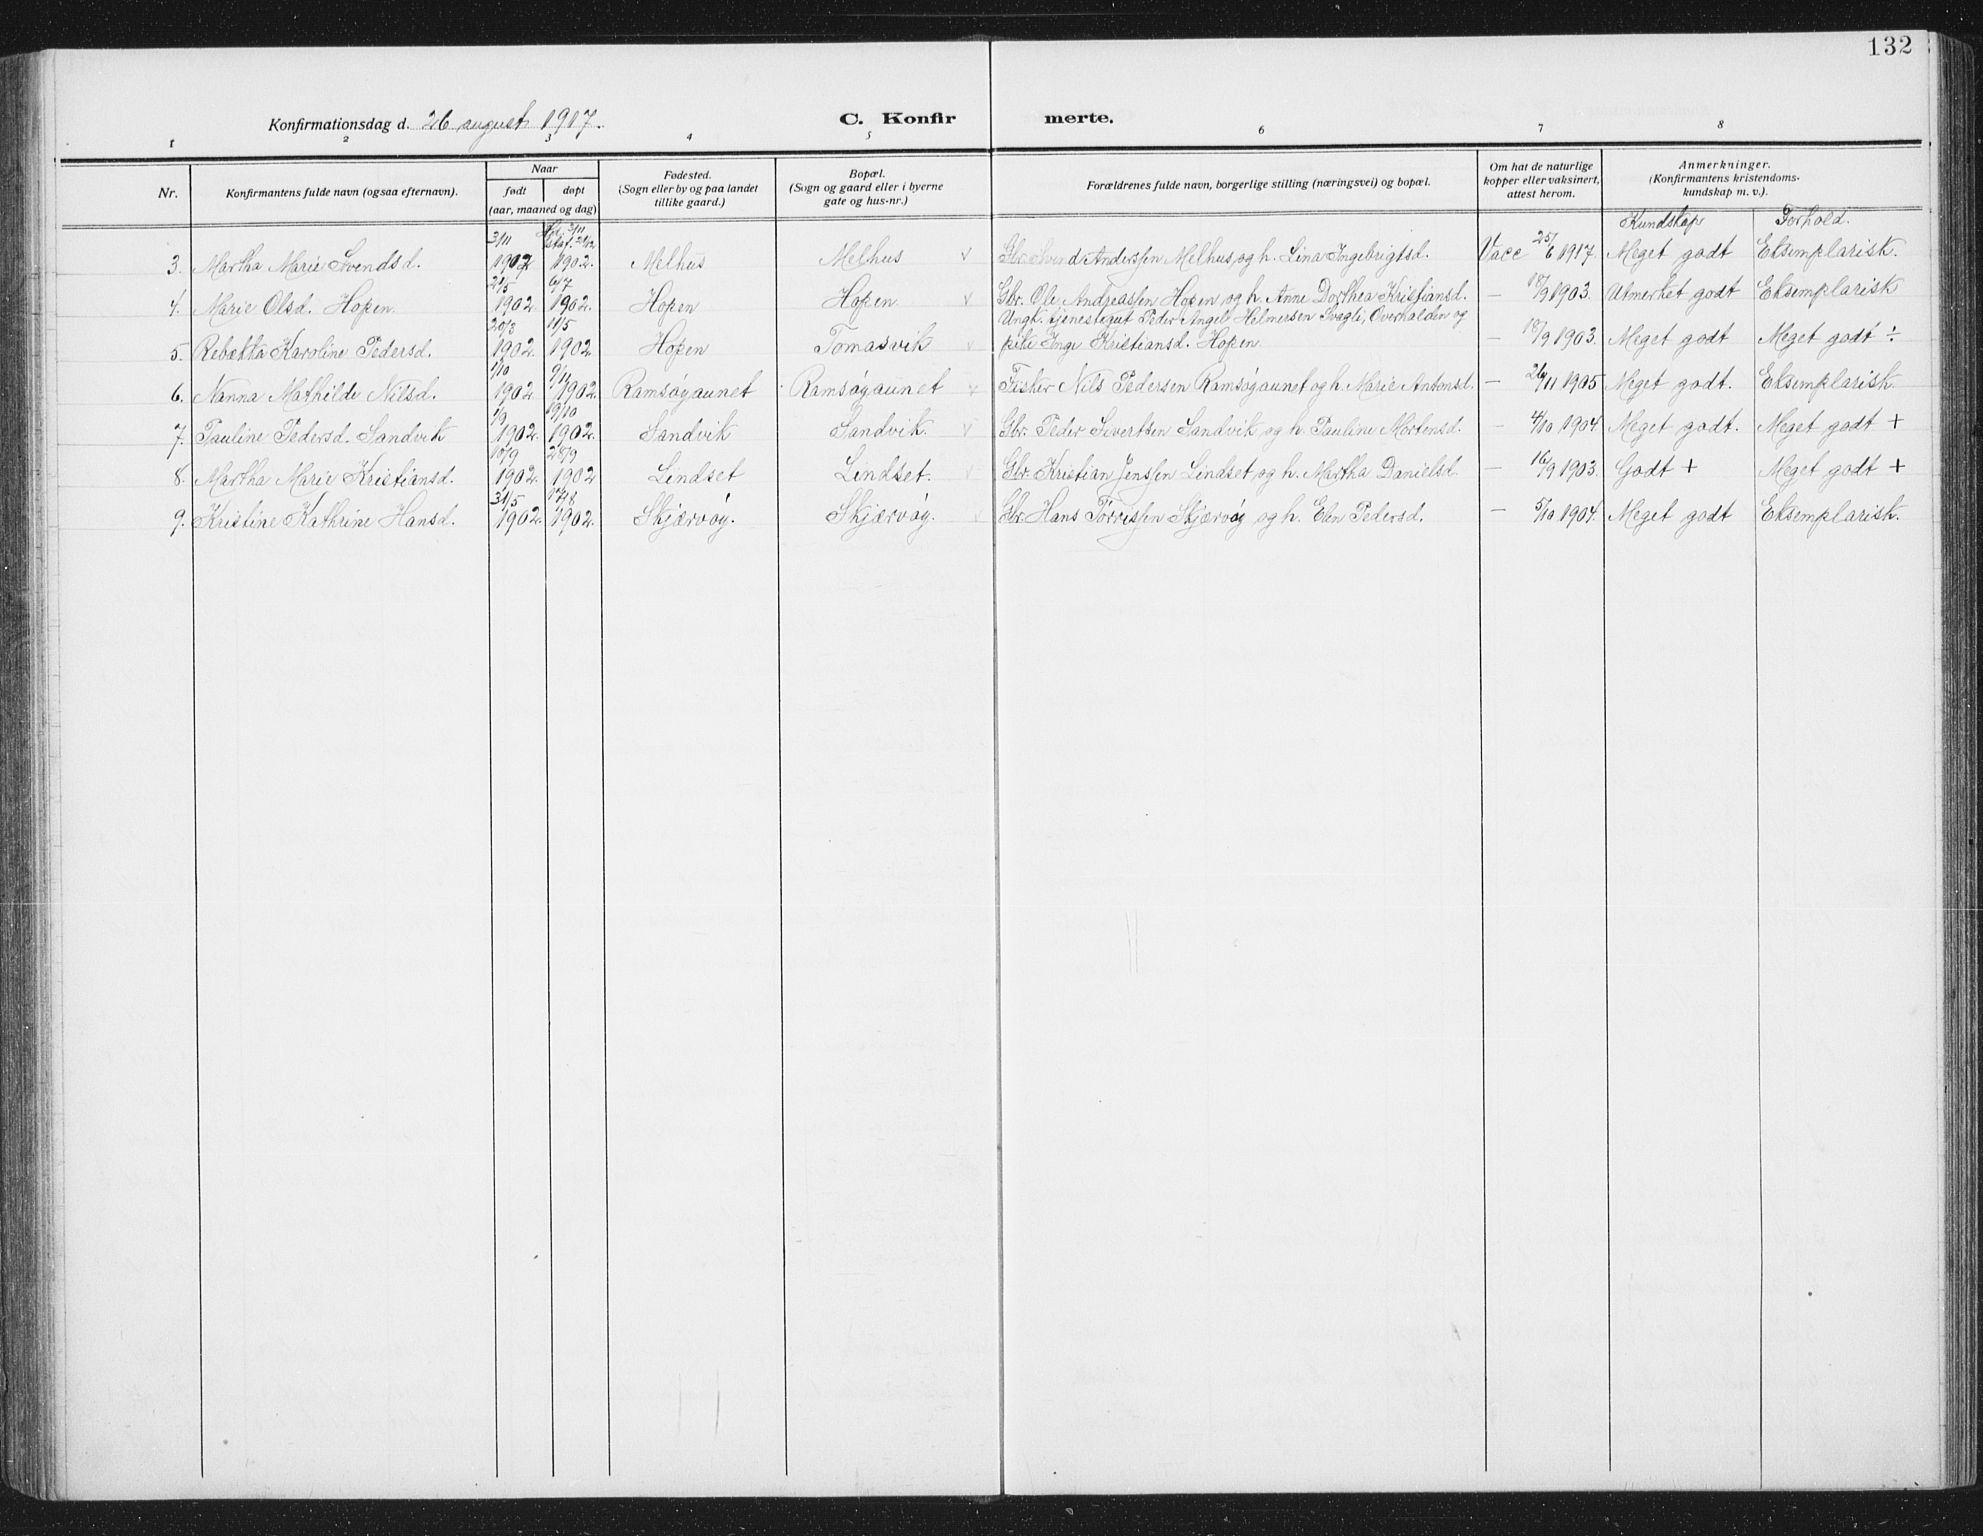 132
Konfirmationsdag d. 26 august 1917. C. Konfirmerte.
1 2 3 4 5 6 7 8
Nr. Konfirmantens fulde navn (ogsaa efternavn). Naar født døpt (aar, maaned og dag) Fødested. (Sogn eller by og paa landet tillike gaard.) Bopæl. (Sogn og gaard eller i byerne gate og hus-nr.) Forældrenes fulde navn, borgerlige stilling (næringsvei) og bopæl. Om hat de naturlige kopper eller vaksinert, attest herom. Anmerkninger. (Konfirmantens kristendoms-kundskap m. v.).
Kundskap Forhold.
3. Martha Marie Svendsd. 3/11 1902 Hj. 3/11 stat. 21/12 1902. Melhus Melhus v Gbr. Svend Anderssen Melhus og h. Lina Ingebrigtsd. Vacc 25/6 1917. Meget godt Eksemplarisk.
4. Marie Olsd. Hopen 21/5 1902. 6/7 1902. Hopen Hopen v Gbr. Ole Andreassen Hopen og h. Anne Dorthea Kristiansd. — 18/9 1903. Utmerket godt Eksemplarisk
5. Rebekka Karoline Pedersd. 20/3 1902. 11/5 1902 Hopen Tomasvik v Ungk. tjenestegut Peder Angel Helmersen Svagli, Overhalden og
pike Inge Kristiansd. Hopen — 18/9 1903. Meget godt Meget godt ÷
6. Nanna Mathilde Nilsd. 1/10 1902. 9/11 1902. Ramsøyaunet Ramsøyaunet v Fisker Nils Pedersen Ramsøyaunet og h. Marie Antonsd. — 26/11 1905 Meget godt. Eksemplarisk
7. Pauline Pedersd. Sandvik 1/9 1902. 19/10 1902. Sandvik Sandvik. v Gbr. Peder Sivertsen Sandvik og h. Pauline Mortensd. — 4/10 1904. Meget godt. Meget godt +
8. Martha Marie Kristiansd. 10/9 1902. 28/9 1902 Lindset Lindset. v Gbr. Kristian Jenssen Lindset og h. Martha Danielsd. — 16/9 1903. Godt + Meget godt +
9. Kristine Kathrine Hansd. 31/5 1902. 17/8 1902. Skjærvøy. Skjærvøy. v Gbr. Hans Torrissen Skjærvøy og h. Elen Pedersd. — 5/10 1904. Meget godt Eksemplarisk.